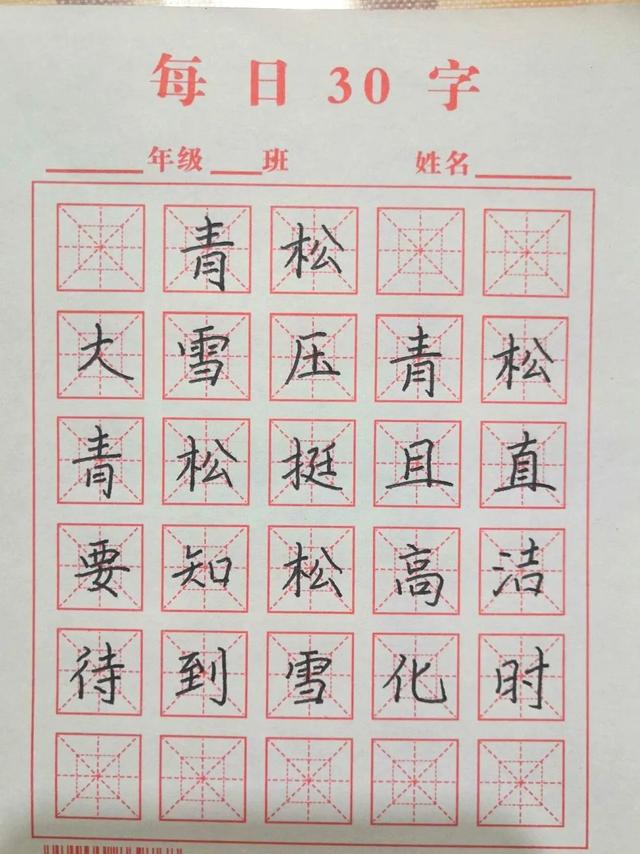 每日30字
年级 班 姓名
青松
大雪压青松
青松挺且直
要知松高洁
待到雪化时